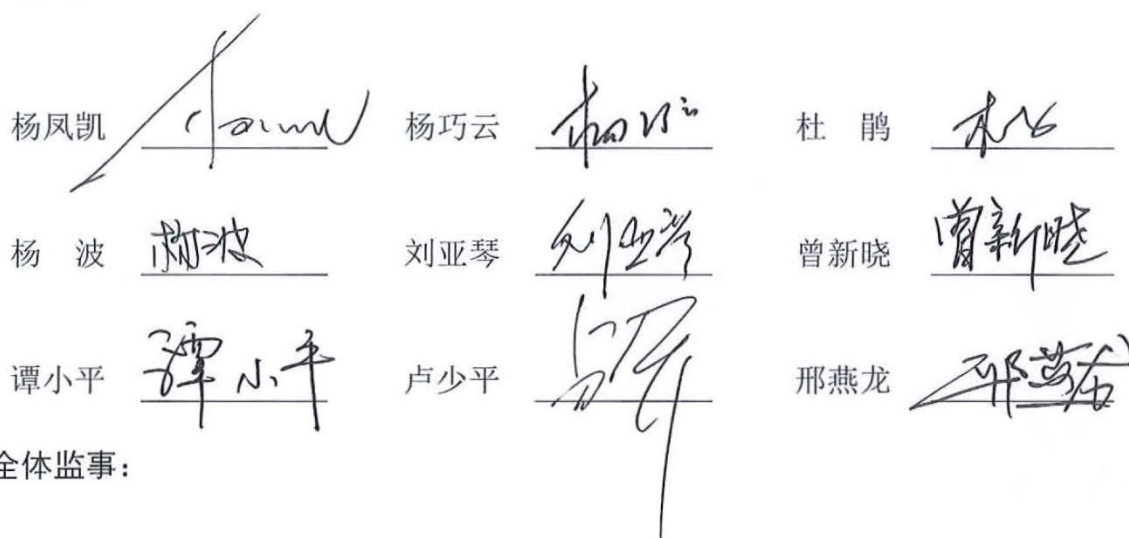 杨凤凯 杨巧云 杨巧云 杜 鹃
杨 波 杨波 刘亚琴 刘亚琴 曾新晓 曾新晓
谭小平 谭小平 卢少平 邢燕龙 邢燕龙
全体监事：